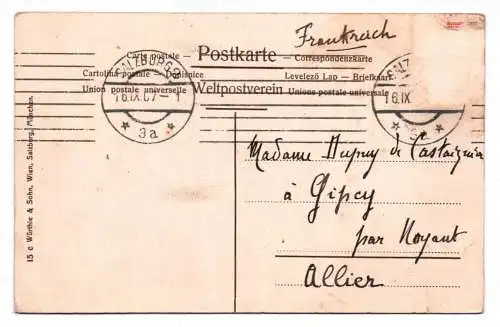 Frankreich
Carte postale — Postkarte — Correspondenzkarte
Cartolina postale — Dopisnice Levelező Lap — Briefkaart
Union postale universelle Weltpostverein Unione postale universale
SALZBURG 2
16.IX.07-1
* 3a *
16.IX
Madame Dupuy de Castaignier
à Gipcy
par Noyant
Allier
15 c Würthle & Sohn, Wien, Salzburg, München.